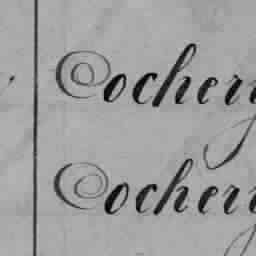 Cochery
Cochery